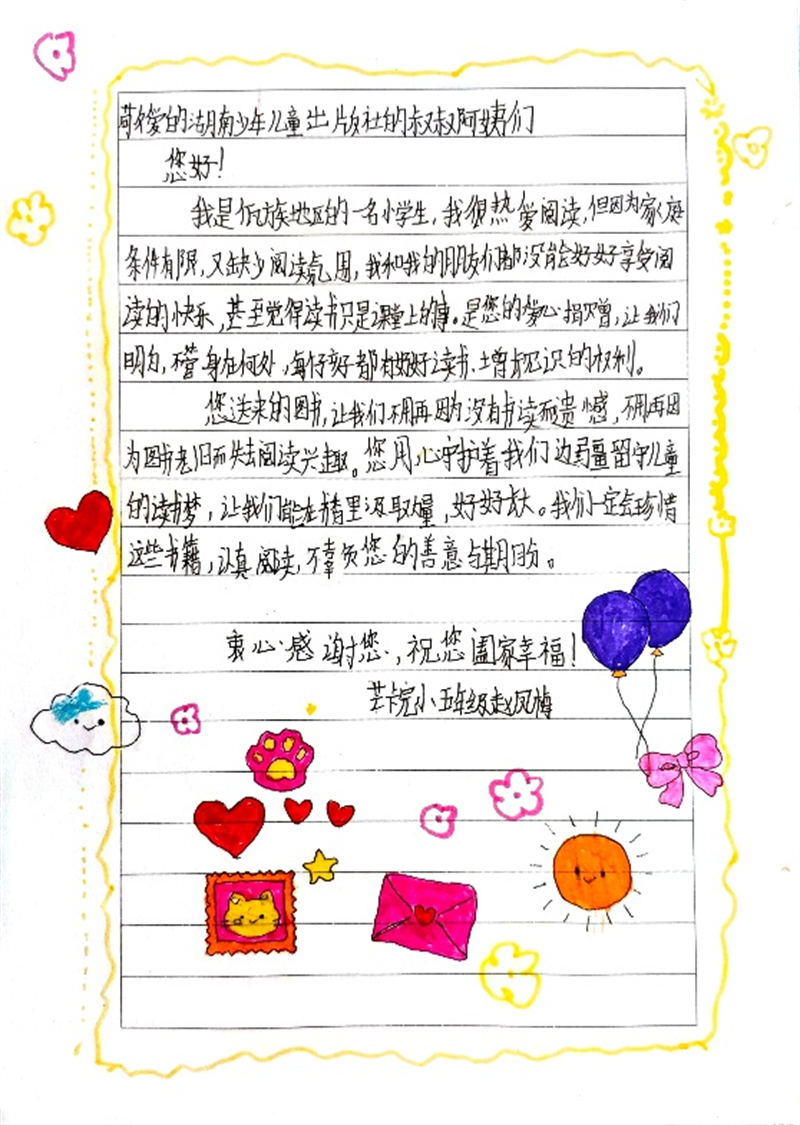 敬爱的湖南少年儿童出版社的叔叔阿姨们
您好!
我是佤族地区的一名小学生,我很热爱阅读,但因为家庭
条件有限,又缺少阅读氛围,我和我的朋友们都没能好好享受阅
读的快乐,甚至觉得读书只是课堂上的事。是您的爱心捐赠,让我们
明白,不管身在何处,每个孩子都有好好读书、增长见识的权利。
您送来的图书,让我们不用再因为没有书读而遗憾,不用再因
为图书老旧而失去阅读兴趣。您用心守护着我们边疆留守儿童
的读书梦,让我们能在书籍里汲取力量,好好长大。我们一定会珍惜
这些书籍,认真阅读,不辜负您的善意与期盼。
衷心感谢您,祝您阖家幸福!
芒卡完小五年级赵凤梅